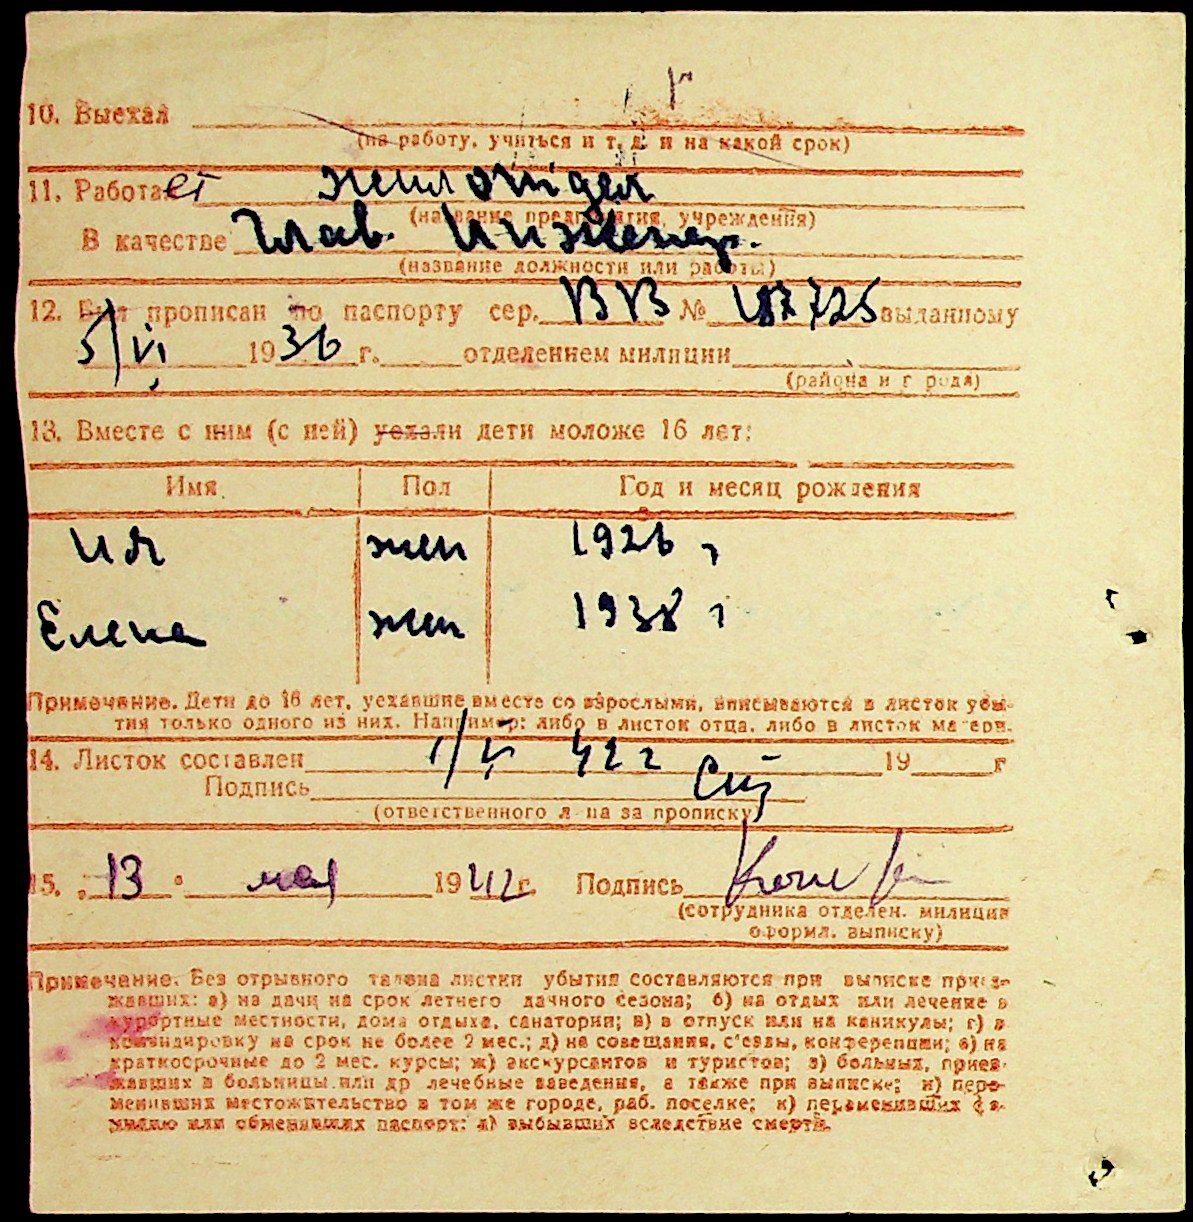 10. Выехал
(на работу, учиться и т. д. и на какой срок)
11. Работает жилотдел
(название предприятия, учреждения)
В качестве Глав. Инженер.
(название должности или работы)
12. Был прописан по паспорту сер. ВВ № выданному
5/VI 1936 г. отделением милиции
(района и города)
13. Вместе с ним (с ней) уехали дети моложе 16 лет:
Имя Пол Год и месяц рождения
Ия жен 1926 г
Елена жен 1938 г
Примечание. Дети до 16 лет, уехавшие вместе со взрослыми, вписываются в листок убы-
тия только одного из них. Например: либо в листок отца, либо в листок матери.
14. Листок составлен 1/V 42 г 19 г
Подпись
(ответственного лица за прописку)
15. „13" мая 1942 г. Подпись
(сотрудника отделен. милиции
оформл. выписку)
Примечание. Без отрывного талона листки убытия составляются при выписке приез-
жавших: а) на дачи на срок летнего дачного сезона; б) на отдых или лечение в
курортные местности, дома отдыха, санатории; в) в отпуск или на каникулы; г) в
командировку на срок не более 2 мес.; д) на совещания, с'езды, конференции; е) на
краткосрочные до 2 мес. курсы; ж) экскурсантов и туристов; з) больных, приез-
жавших в больницы или др лечебные заведения, а также при выписке; и) пере-
менивших местожительство в том же городе, раб. поселке; к) переменивших фа-
милию или обменявших паспорт; л) выбывших вследствие смерти.